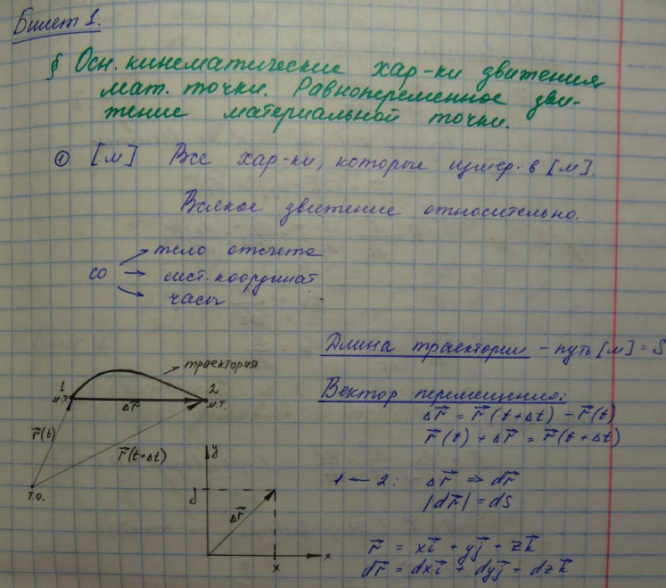 Билет 1.
§ Осн. кинематические хар-ки движения
мат. точки. Равнопеременное дви-
жение материальной точки.
① [м] Все хар-ки, которые измер. в [м].
Всякое движение относительно.
СО
тело отсчета
сист. координат
часы
траектория
1
м.т.
2
м.т.
Δr⃗
r⃗(t)
r⃗(t+Δt)
т.о.
y
y
Δr⃗
x
x
Длина траектории – путь [м] = S
Вектор перемещения:
Δr⃗ = r⃗(t+Δt) – r⃗(t)
r⃗(t) + Δr⃗ = r⃗(t+Δt)
1 — 2: Δr⃗ ⇒ dr⃗
|dr⃗| = dS
r⃗ = xi⃗ + yj⃗ + zk⃗
dr⃗ = dxi⃗ + dyj⃗ + dzk⃗